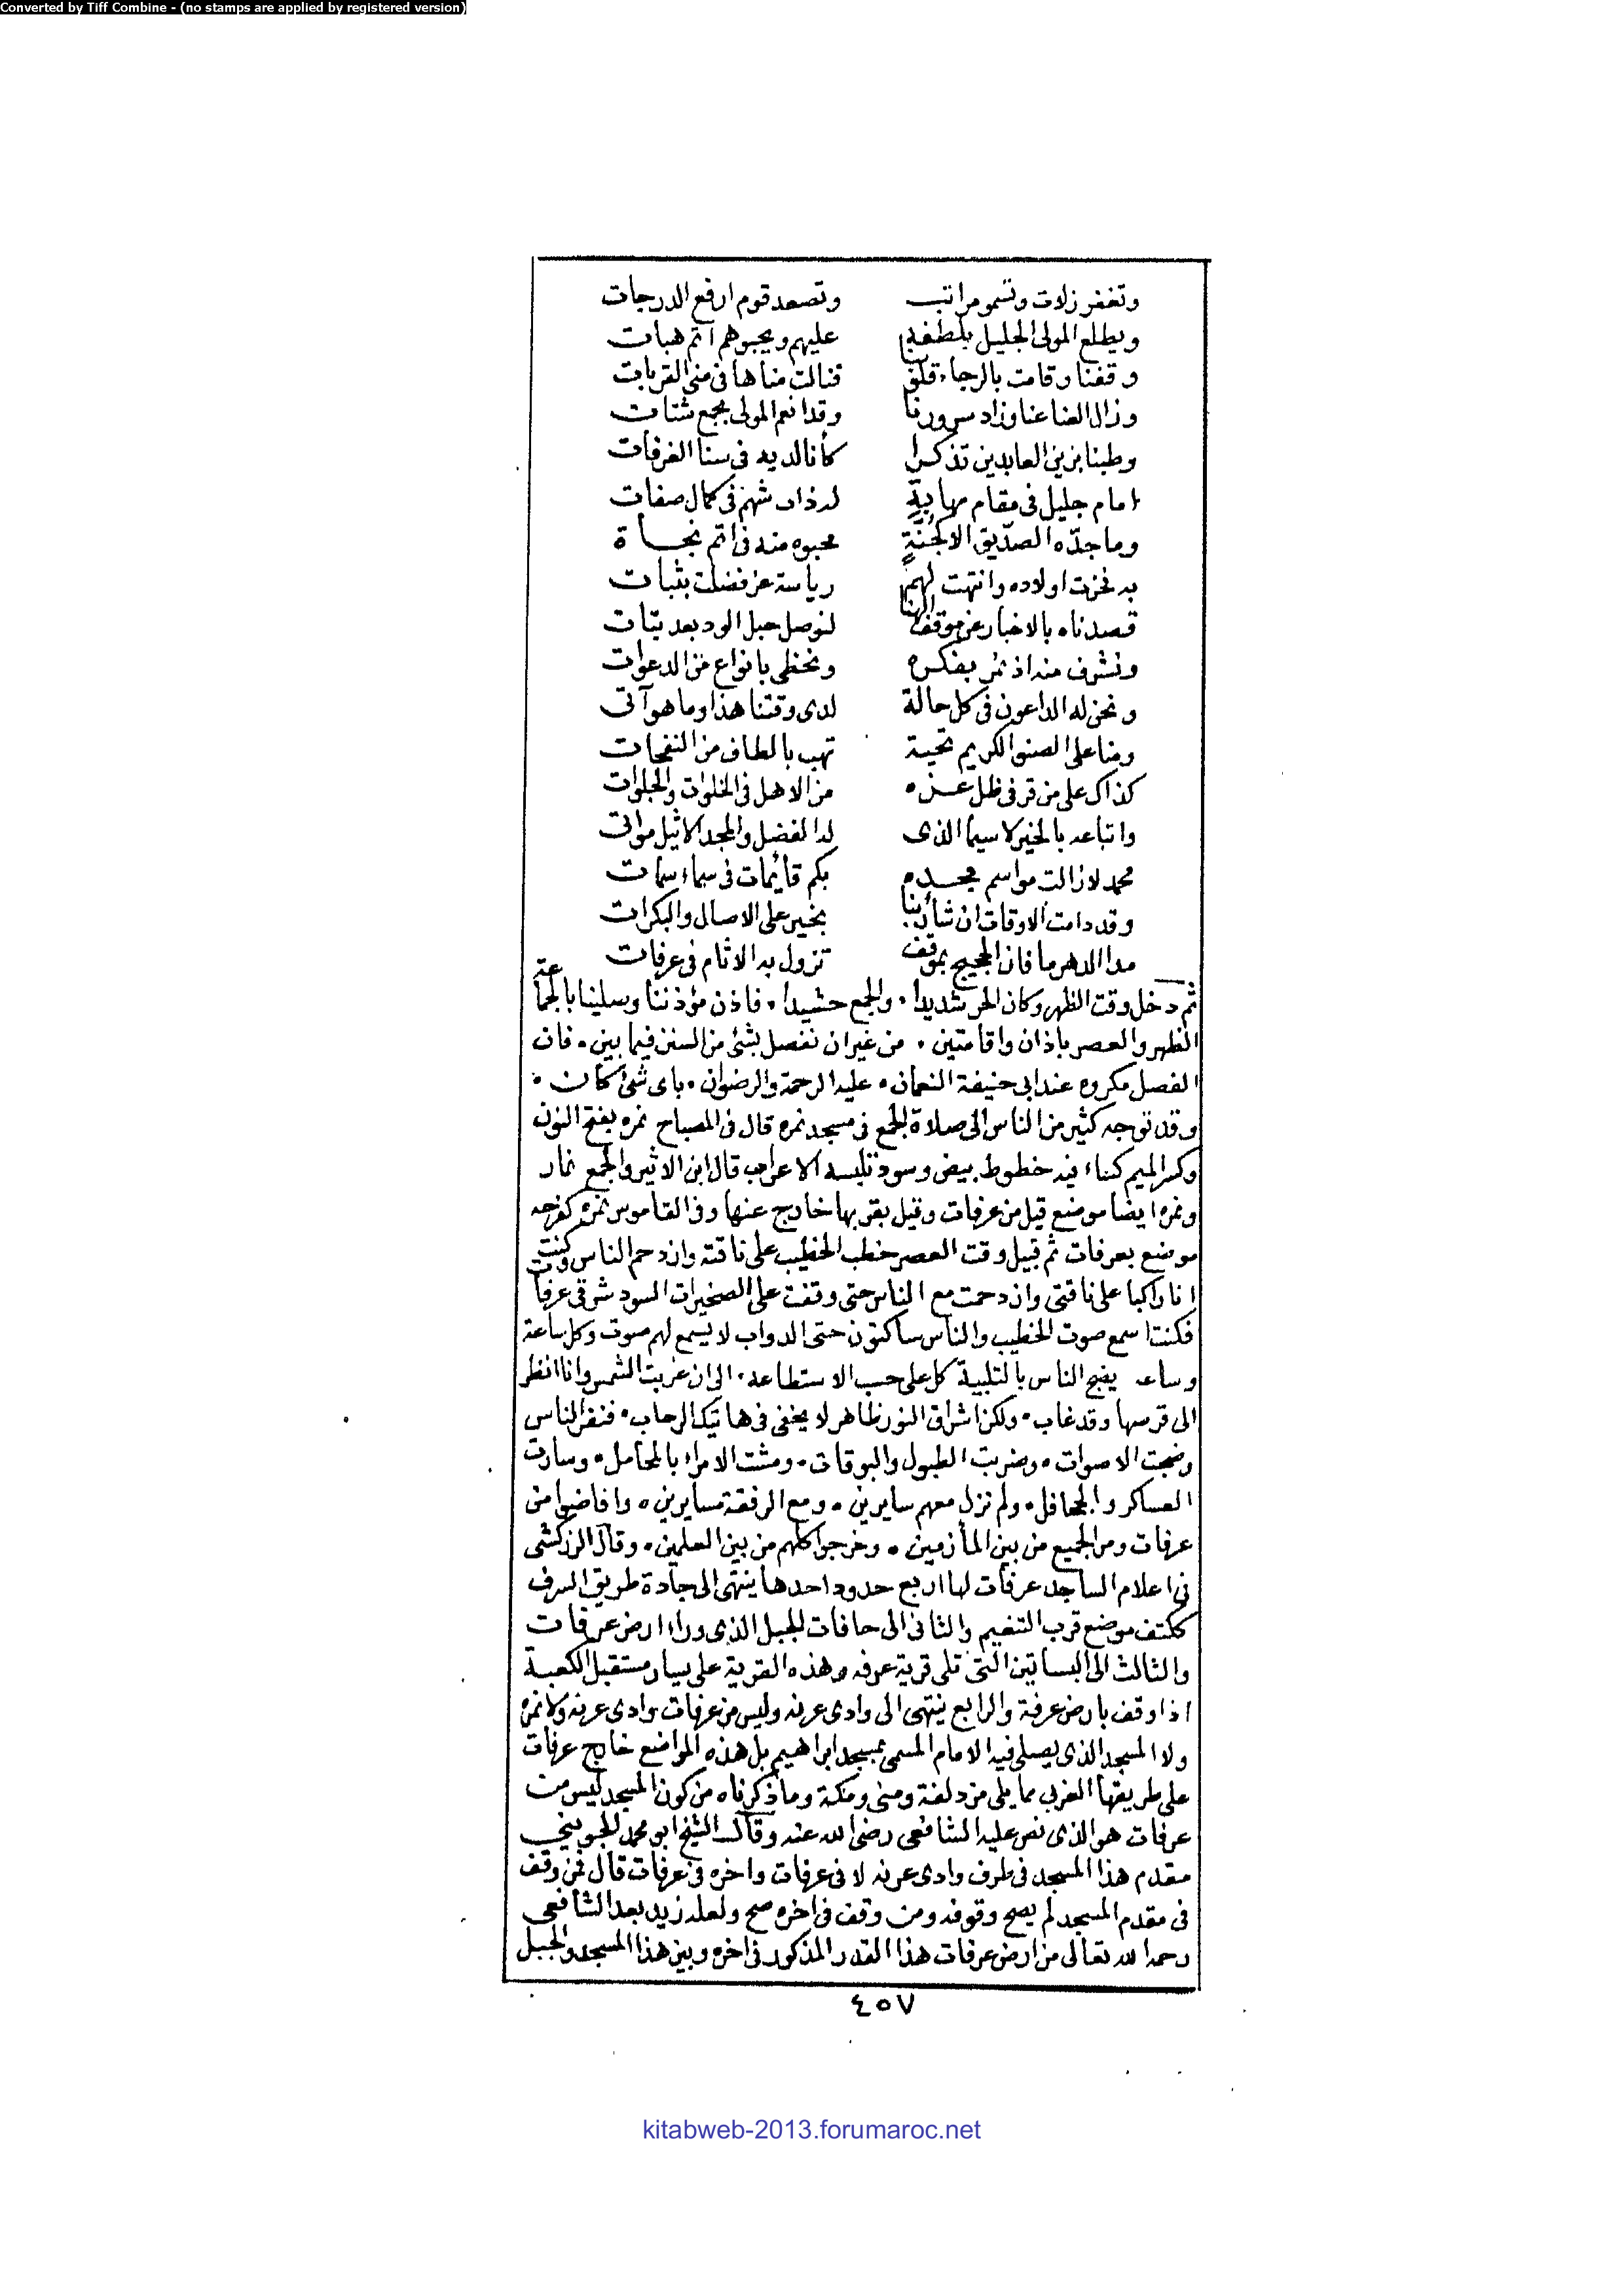 Converted by Tiff Combine - (no stamps are applied by registered version)
وتغفر زلات وتسمو مراتب وتصعد قوم ارفع الدرجات
ويطلع المولى الجليل بلطفه عليهم ويحبوهم اتم هبات
وقفنا وقامت بالرجاء قلوبنا فنالت مناها فى منى القربات
وزال العنا عنا وزاد سرورنا وقد انعم المولى بجمع شتات
وطبنا بزين العابدين تذكرا كأنا لديه فى سنا الغرفات
امام جليل فى مقام مهابة له ذات شهم فى كمال صفات
وما جدّه الصدّيق الا كجُنَّةٍ محبوه منه فى اتم نجاة
به فخرت اولاده وانتهت لهم رياسة عز فضلت بثبات
قصدناه بالاخبار عن موقف الهنا لنوصل حبل الود بعد بتات
ونشرف منه اذ نمر بفكره ونحظى بانواع من الدعوات
ونحن له الداعون فى كل حالة لدى وقتنا هذا وما هو آتى
ومنا على الصنو الكريم تحية تهب بالطاف من النفحات
كذاك على من قر فى ظل عزه من الاهل فى الخلوات والجلوات
واتباعه بالخير لا سيما الذى له الفضل والمجد الاثيل مواتى
محمد لا زالت مواسم مجده بكم قائمات فى سماء سمات
وقد دامت الاوقات ان شاء ربنا بخير على الاصال والبكرات
مدا الدهر ما فاز الحجيج بموقف تزول به الاثام فى عرفات
ثم دخل وقت الظهر وكان الحر شديدا، والجمع حشيدا، فاذن مؤذننا وصلينا بالجماعة
الظهر والعصر باذان واقامتين، من غير ان نفصل بشئ من السنن فيما بين، فان
الفصل مكروه عند ابى حنيفة النعمان، عليه الرحمة والرضوان، باى شئ كان،
وقد توجه كثير من الناس الى صلاة الجمع فى مسجد نمره قال فى المصباح نمره بفتح النون
وكسر الميم كساء فيه خطوط بيض وسود تلبسه الاعراب قال ابن الاثير والجمع نمار
ونمره ايضا موضع قيل من عرفات وقيل بقربها خارج عنها وفى القاموس نمره كفرحه
موضع بعرفات ثم قبيل وقت العصر خطب الخطيب على ناقته وازدحم الناس وكنت
انا راكبا على ناقتى وازدحمت مع الناس حتى وقفت على الصخيرات السود شرقى عرفات
فكنت اسمع صوت الخطيب والناس ساكتون حتى الدواب لا يسمع لهم صوت وكل ساعة
وساعه يضج الناس بالتلبية كل على حسب الاستطاعه، الى ان غربت الشمس وانا انظر
الى قرصها وقد غاب، ولكن اشراق النور ظاهر لا يخفى فى هاتيك الرحاب، فنفر الناس
وضجت الاصوات، وضربت الطبول والبوقات، ومشت الامراء بالمحامل، وسارت
العساكر والجحافل، ولم نزل معهم سايرين، ومع الرفقة مسايرين، وافاضوا من
عرفات ومر الجميع من بين المأزمين، وخرجوا كلهم من بين العلمين، وقال الزركشى
فى اعلام الساجد عرفات لها اربع حدود احدها ينتهى الى جادة طريق السرف
ككتف موضع قرب التنعيم والثانى الى حافات الجبل الذى وراء ارض عرفات
والثالث الى البساتين التى تلى قرية عرفه وهذه القرية على يسار مستقبل الكعبة
اذا وقف بارض عرفة والرابع ينتهى الى وادى عرنه وليس من عرفات وادى عرنه ولا نمره
ولا المسجد الذى يصلى فيه الامام المسمى بمسجد ابراهيم بل هذه المواضع خارج عرفات
على طريقها الغربي مما يلى مزدلفة ومنى ومكة وما ذكرناه من كون المسجد ليس من
عرفات هو الذى نص عليه الشافعى رضى الله عنه وقال الشيخ ابو محمد الجوينى
مقدم هذا المسجد فى طرف وادى عرنه لا فى عرفات واخره فى عرفات قال فمن وقف
فى مقدم المسجد لم يصح وقوفه ومن وقف فى اخره صح ولعله زيد بعد الشافعى
رحمه الله تعالى من ارض عرفات هذا القدر المذكور فى اخره وبين هذا المسجد والجبل
٤٥٧
kitabweb-2013.forumaroc.net